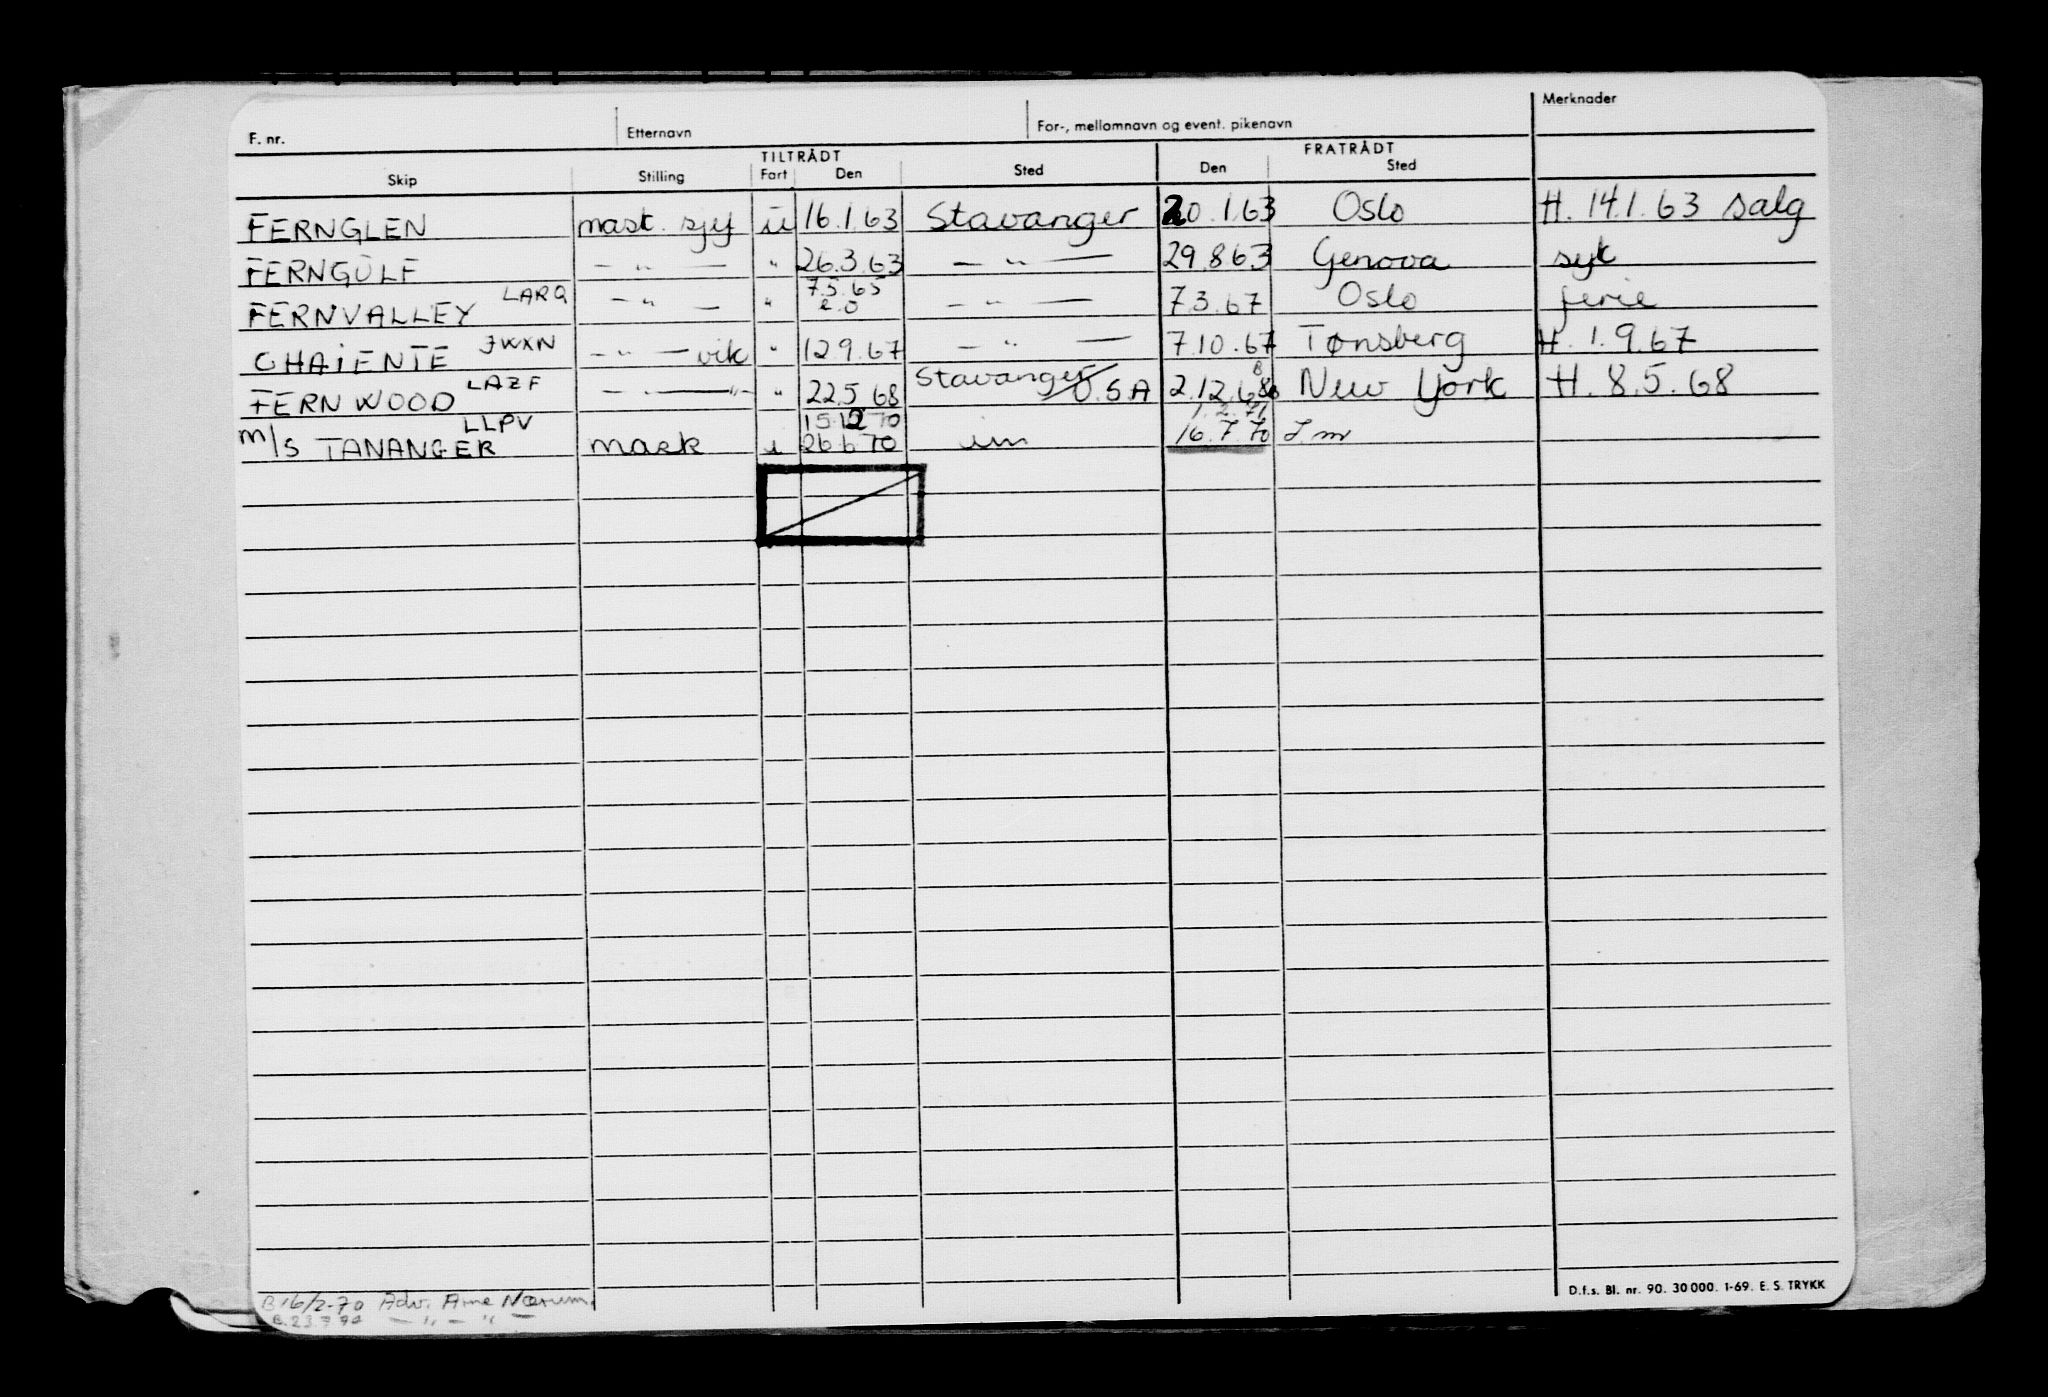 F. nr. Etternavn For-, mellomnavn og event. pikenavn Merknader
TILTRÅDT FRATRÅDT
Skip Stilling Fart Den Sted Den Sted
FERNGLEN mask. sjef u 16.1.63 Stavanger 20.1.63 Oslo H. 14.1.63 salg
FERNGULF — " — " 26.3.63 — " — 29.8.63 Genova syk
FERNVALLEY LARQ — " — " 7.5.65 e.o — " — 7.3.67 Oslo ferie
CHAIENTE JWXN — " — vik " 12.9.67 — " — 7.10.67 Tønsberg H. 1.9.67
FERNWOOD LAZF — " — " — " 22.5 68 Stavanger U.S.A 2.12.68 New York H. 8.5.68
15.12 70 1.2.71
m/s TANANGER LLPV mask i 26 6 70 um 16.7.70 I m
D.f.s. Bl. nr. 90. 30 000. 1-69. E. S. TRYKK
B 16/2-70 Adv. Arne Nærum.
B. 23 7 70 — " — " —